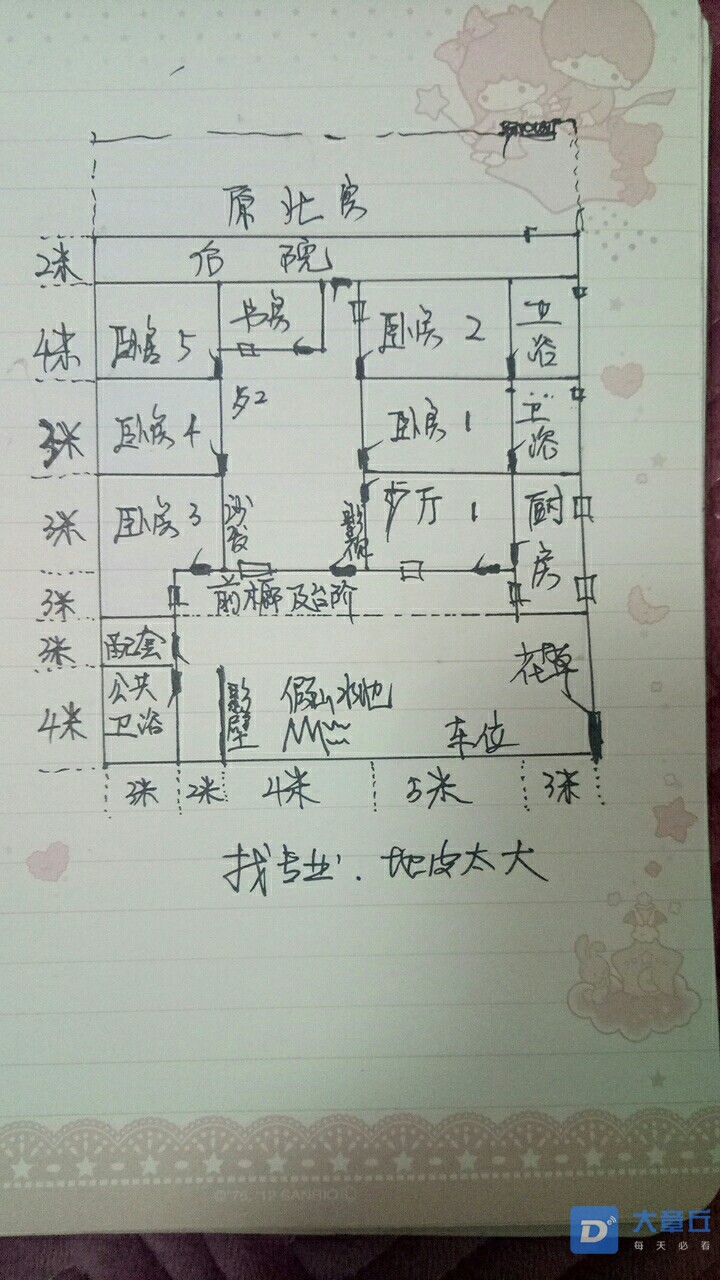 原北房
2米 后院
4米 卧房5 书房 卧房2 卫浴
3米 卧房4 卧房1 卫浴
3米 卧房3 沙发 影视 歺厅1 厨房
3米 前廊及台阶
3米 配套 花草
4米 公共卫浴 影壁 假山水池 车位
3米 2米 4米 5米 3米
找专业．地皮太大
©'76, '12 SANRIO
大章丘
每天必看